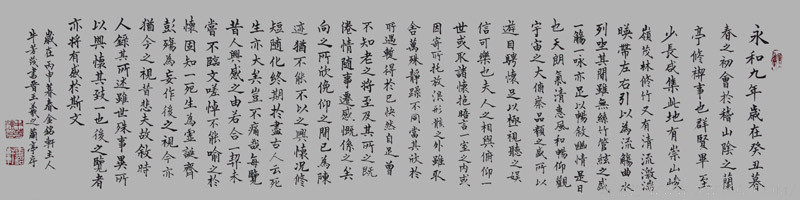 永和九年歲在癸丑暮
春之初會於稽山陰之蘭
亭修禊事也群賢畢至
少長咸集此地有崇山峻
嶺茂林修竹又有清流激湍
暎帶左右引以為流觴曲水
列坐其間雖無絲竹管絃之盛
一觴一詠亦足以暢敘幽情是日
也天朗氣清惠風和暢仰觀
宇宙之大俯察品類之盛所以
遊目騁懷足以極視聽之娛
信可樂也夫人之相與俯仰一
世或取諸懷抱晤言一室之內或
因寄所託放浪形骸之外雖取
舍萬殊靜躁不同當其欣於
所遇暫得於己快然自足曾
不知老之將至及其所之既
倦情隨事遷感慨係之矣
向之所欣俛仰之間已為陳
迹猶不能不以之興懷況修
短隨化終期於盡古人云死
生亦大矣豈不痛哉每覽
昔人興感之由若合一契未
嘗不臨文嗟悼不能喻之於
懷固知一死生為虛誕齊
彭殤為妄作後之視今亦
猶今之視昔悲夫故敘時
人錄其所述雖世殊事異所
以興懷其致一也後之覽者
亦將有感於斯文
歲在丙申暮春金銘軒主人
芳茂書晉王羲之蘭亭序